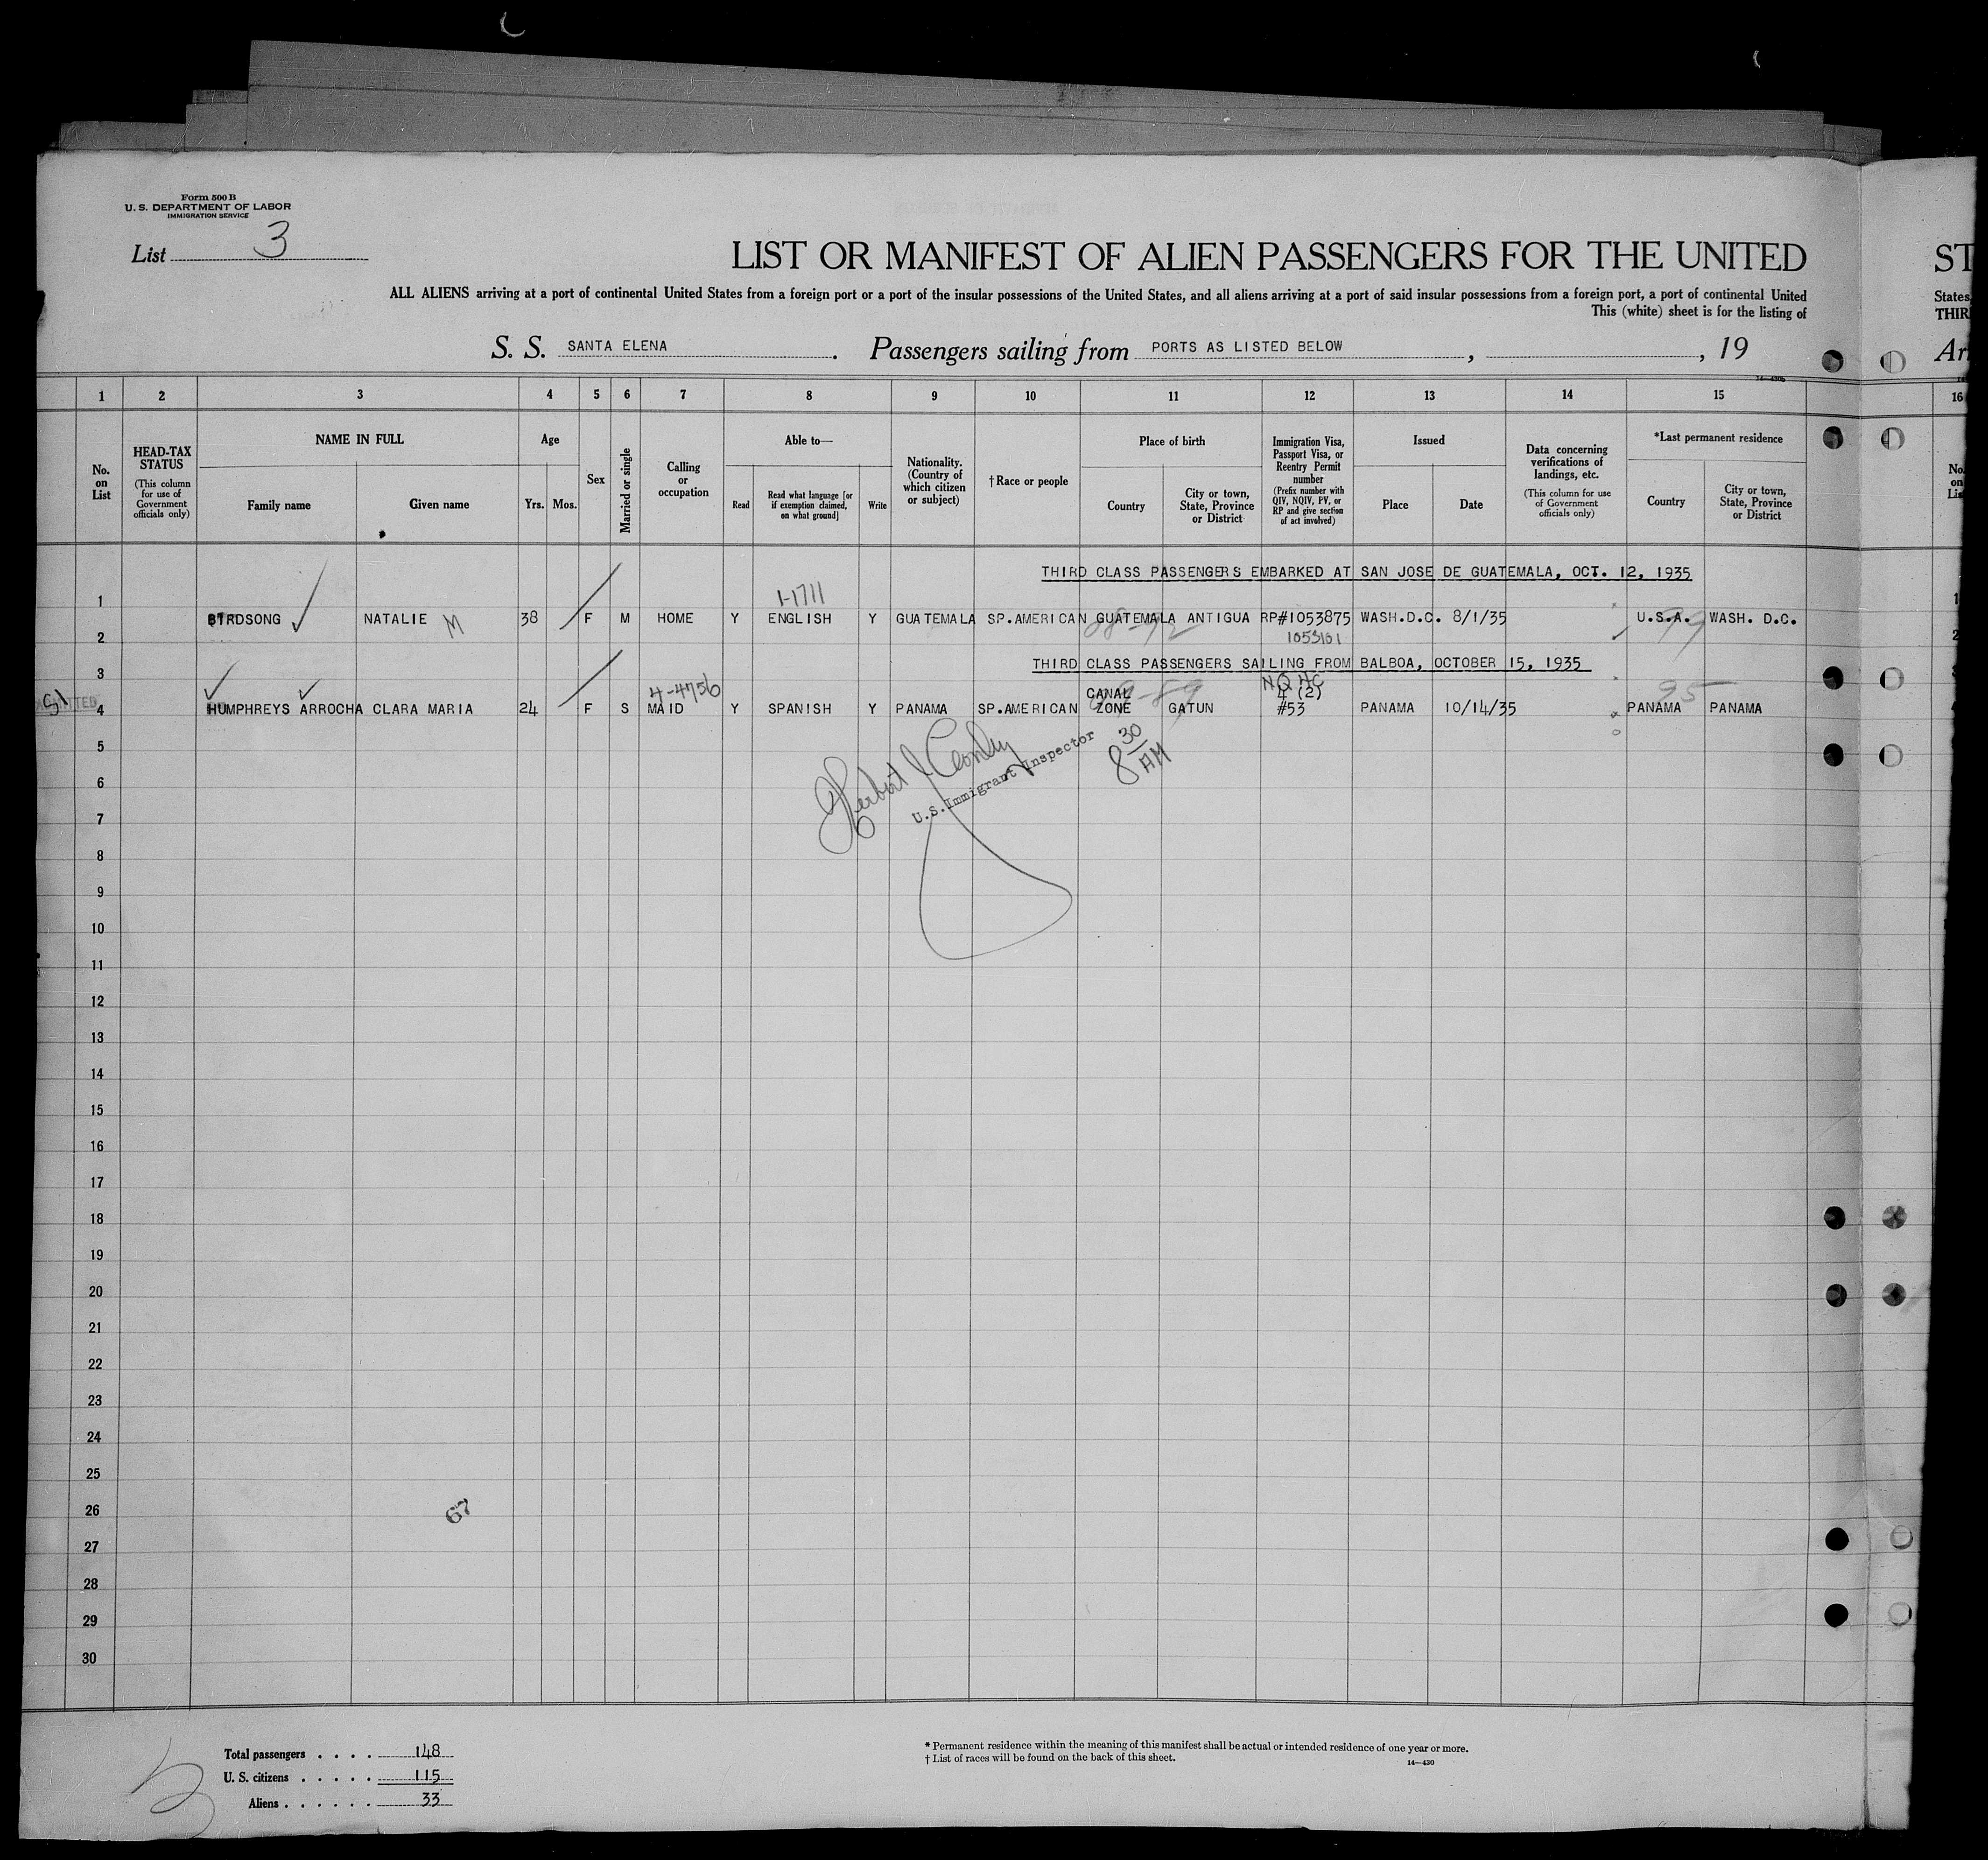 Form 500 B
U. S. DEPARTMENT OF LABOR
IMMIGRATION SERVICE
List 3
LIST OR MANIFEST OF ALIEN PASSENGERS FOR THE UNITED
ST
ALL ALIENS arriving at a port of continental United States from a foreign port or a port of the insular possessions of the United States, and all aliens arriving at a port of said insular possessions from a foreign port, a port of continental United
States,
This (white) sheet is for the listing of
THIR
S. S. SANTA ELENA. Passengers sailing from PORTS AS LISTED BELOW, , 19
Arr
1 2 3 4 5 6 7 8 9 10 11 12 13 14 15 16
No. on List
HEAD-TAX STATUS (This column for use of Government officials only)
NAME IN FULL
Family name
Given name
Age
Yrs. Mos.
Sex
Married or single
Calling or occupation
Able to—
Read
Read what language [or if exemption claimed, on what ground]
Write
Nationality. (Country of which citizen or subject)
† Race or people
Place of birth
Country
City or town, State, Province or District
Immigration Visa, Passport Visa, or Reentry Permit number (Prefix number with QIV, NQIV, PV, or RP and give section of act involved)
Issued
Place
Date
Data concerning verifications of landings, etc. (This column for use of Government officials only)
*Last permanent residence
Country
City or town, State, Province or District
THIRD CLASS PASSENGERS EMBARKED AT SAN JOSE DE GUATEMALA, OCT. 12, 1935
1-1711
1 BIRDSONG NATALIE M 38 F M HOME Y ENGLISH Y GUATEMALA SP.AMERICAN GUATEMALA ANTIGUA RP#1053875 WASH.D.C. 8/1/35 U.S.A. WASH. D.C.
2 1053161
THIRD CLASS PASSENGERS SAILING FROM BALBOA, OCTOBER 15, 1935
3
4-4756 CANAL NQ NC 4 (2) 95
4 HUMPHREYS ARROCHA CLARA MARIA 24 F S MAID Y SPANISH Y PANAMA SP.AMERICAN ZONE GATUN #53 PANAMA 10/14/35 PANAMA PANAMA
5
U.S. Immigrant Inspector
8 30 AM
6
7
8
9
10
11
12
13
14
15
16
17
18
19
20
21
22
23
24
25
26
67
27
28
29
30
Total passengers . . . . 148
U. S. citizens . . . . . 115
Aliens . . . . . . 33
* Permanent residence within the meaning of this manifest shall be actual or intended residence of one year or more.
† List of races will be found on the back of this sheet.
14—430